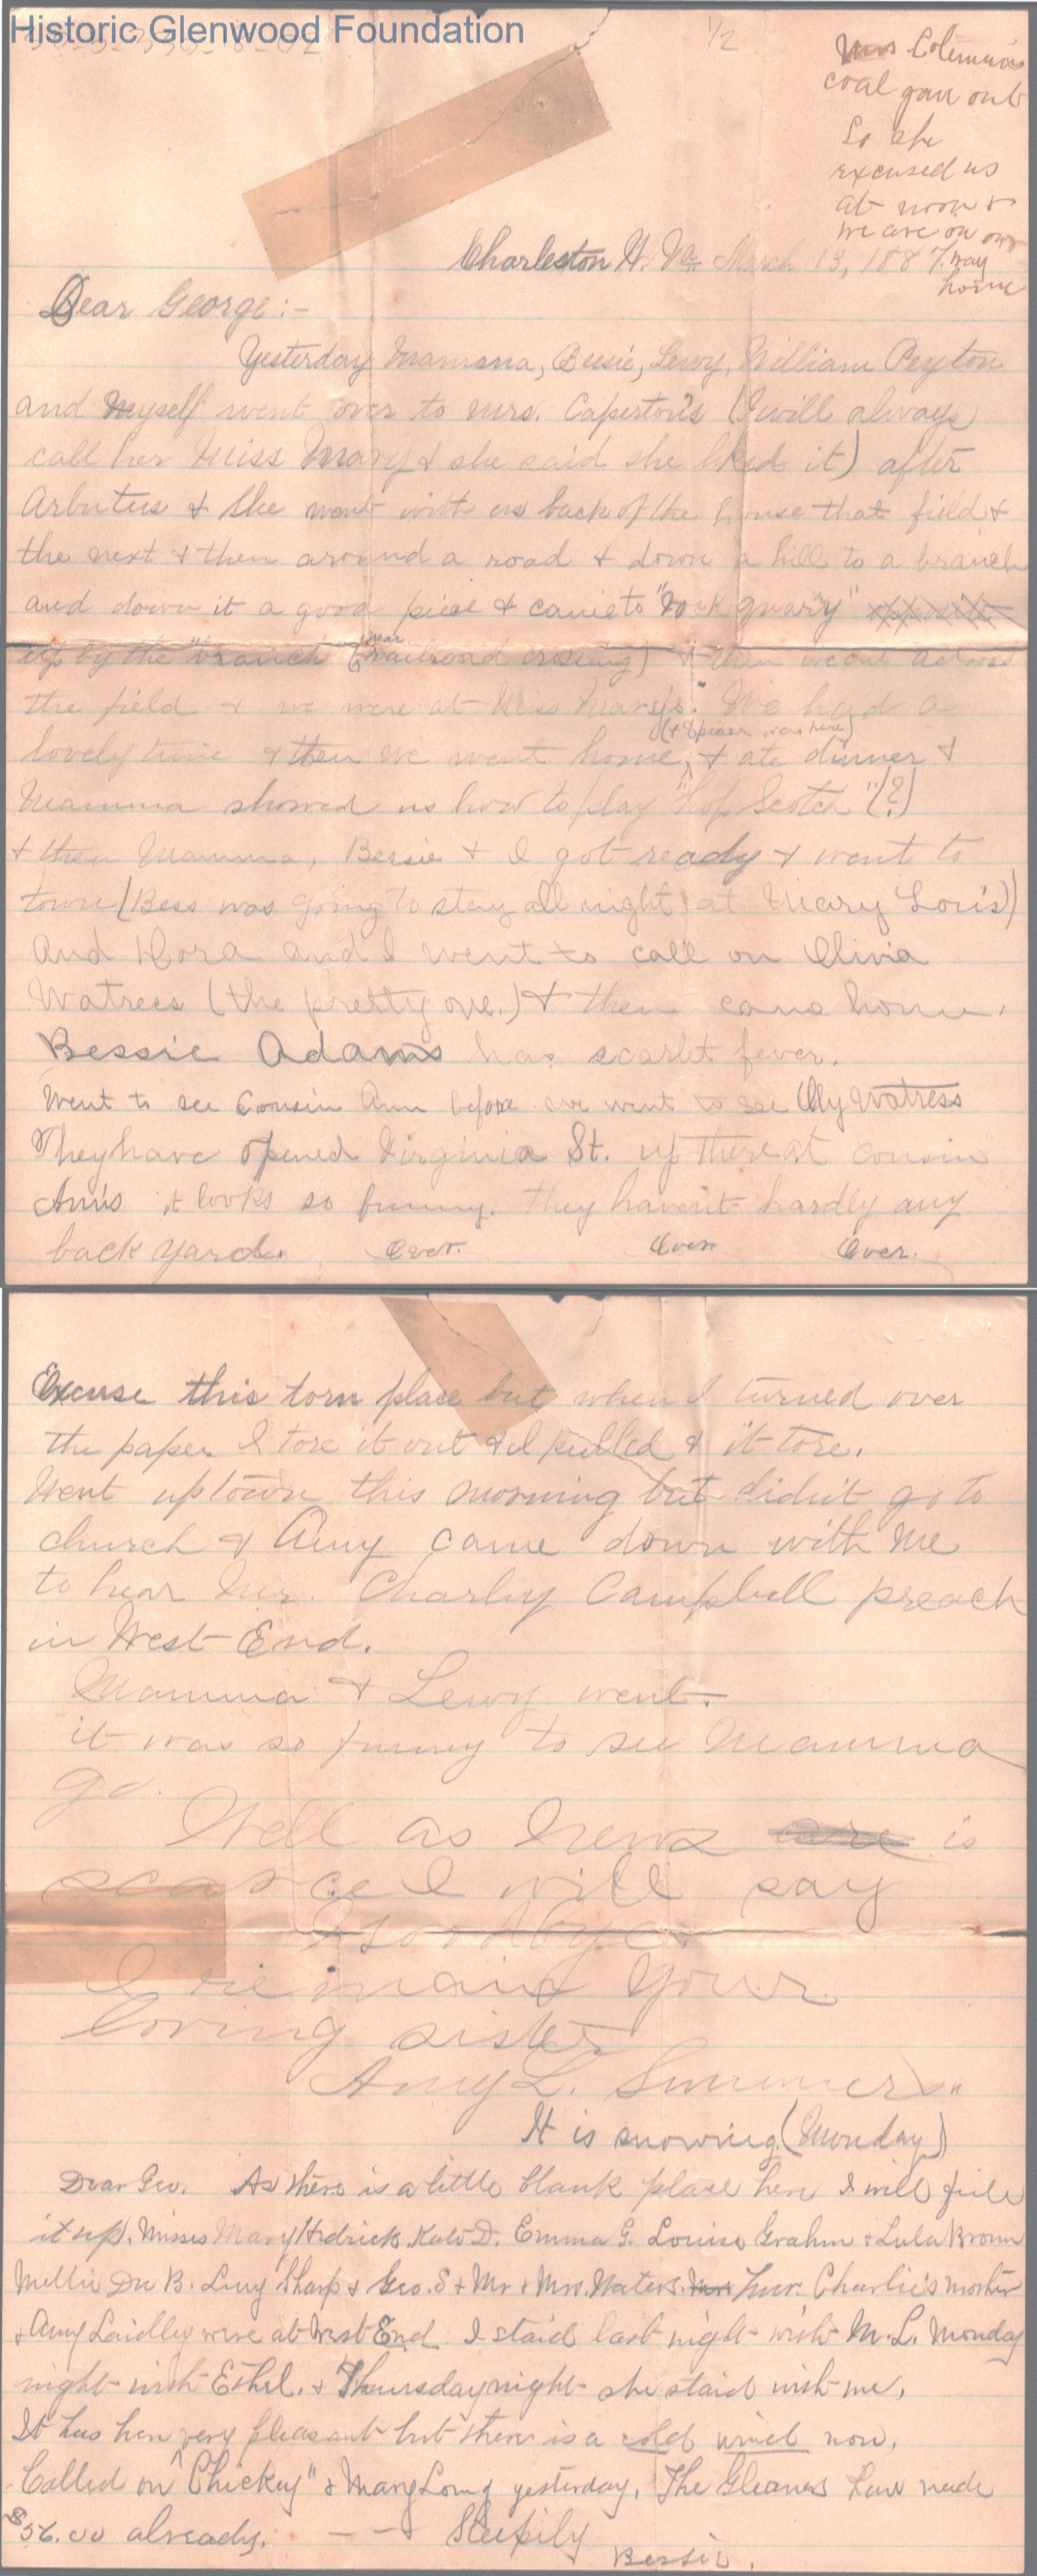 Historic Glenwood Foundation
1/2
Mrs Coleman's
coal gave out
So she
excused us
at noon &
we are on our
way
home
Charleston W. Va March 13, 1887.
Dear George:-
Yesterday Mamma, Bessie, Lewy, William Peyton
and Myself went over to Mrs. Caperton's (I will always
call her Miss Mary & she said she liked it) after
Arbutus & she went with us back of the house that field &
the next & then around a road & down a hill to a branch
and down it a good piece & came to "rock quarry"
up by the "branch" (near railroad crossing) & then we cut across
the field & we were at Miss Mary's. We had a
lovely time & then we went home, (& Spicer was here) & ate dinner &
Mamma showed us how to play "hop Scotch" (?)
& then Mamma, Bessie & I got ready & went to
town (Bess was going to stay all night at Mary Lou's)
And Dora and I went to call on Olivia
Watress (the pretty one.) & then came home.
Bessie Adams has scarlet fever.
Went to see Cousin Ann before we went to see Oly Watress
They have opened Virginia St. up there at cousin
Ann's it looks so funny. They haven't hardly any
back yard. Over. Over Over.
Excuse this torn place but when I turned over
the paper I tore it out & I pulled & it tore.
Went uptown this morning but didn't go to
church & Amy came down with me
to hear Mr. Charley Campbell preach
in West End.
Mamma & Lewy went.
it was so funny to see Mamma
go.
Well as News are is
scarce I will say
Goodbye.
I remain Your
loving sister
Amy L. Summers.
It is snowing (Monday)
Dear Geo. As there is a little blank place here I will fill
it up. Misses Mary Hedrick, Kate D. Emma G. Louise Grahm & Lula Brown
Mellie Du B. Lucy Sharp & Geo. S & Mr & Mrs. Waters. Mrs Mr. Charlie's mother
& Amy Laidley were at West End. I staid last night with M. L. Monday
night with Ethel. & Thursday night she staid with me.
It has been very pleasant but there is a cold wind now.
Called on "Chickey" & Mary Long yesterday. The Gleaners have made
$56.00 already. - - Sleepily
Bessie.